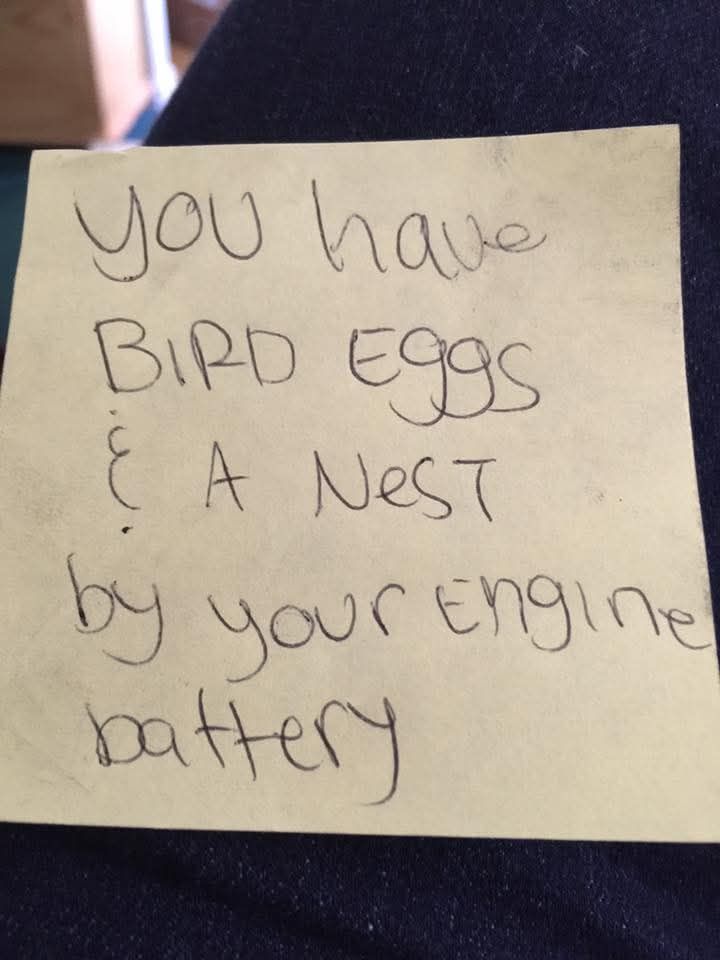 you have
BIRD Eggs
& A NesT
by your Engine
battery